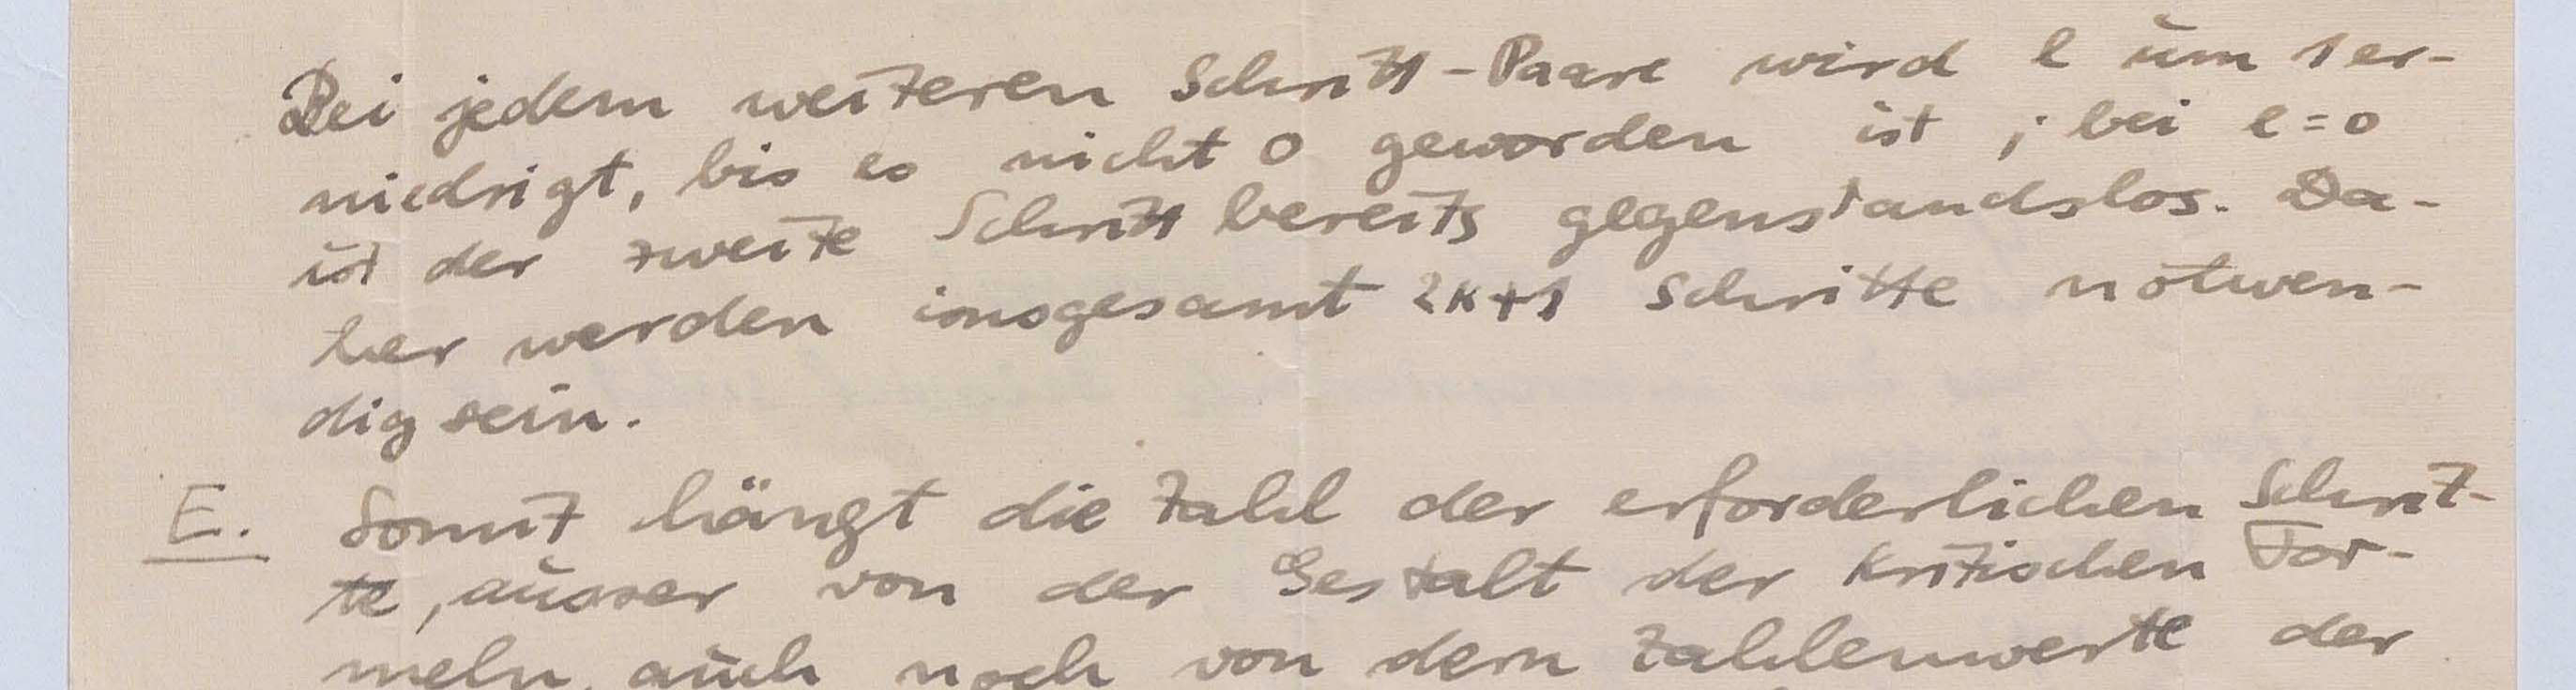 Bei jedem weiteren Schritt-Paare wird l um 1 er-
niedrigt, bis es nicht 0 geworden ist ; bei l=0
ist der zweite Schritt bereits gegenstandslos. Da-
her werden insgesamt 2K+1 Schritte notwen-
dig sein.
E. Somit hängt die Zahl der erforderlichen Schrit-
te, ausser von der Gestalt der kritischen For-
meln, auch noch von dem Zahlenwerte der